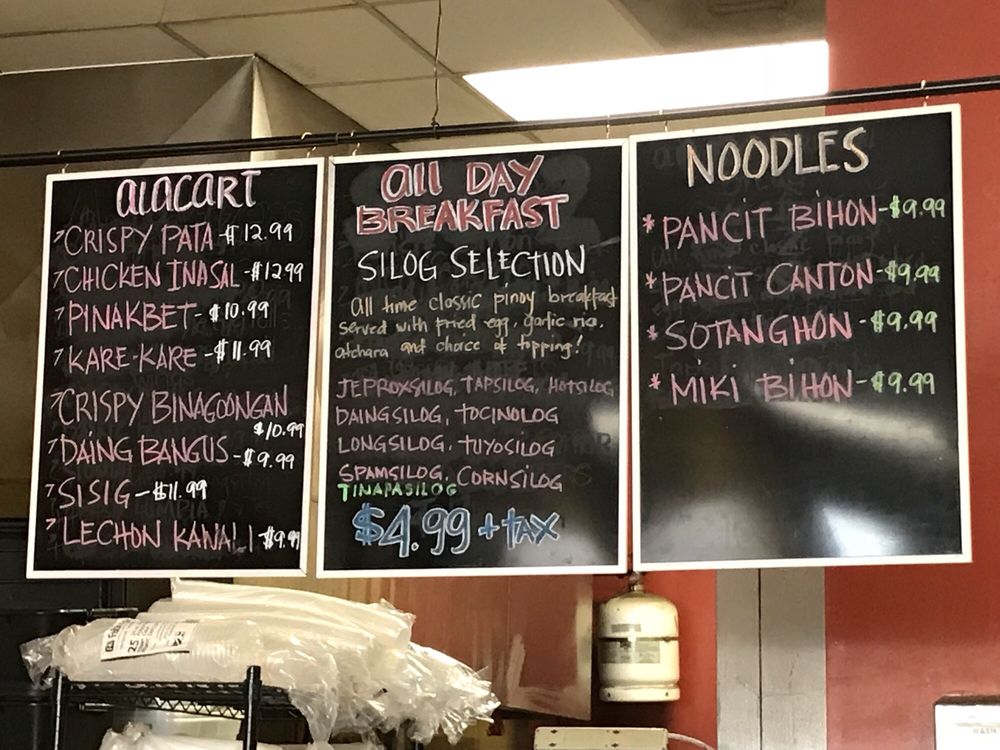 alacart
CRISPY PATA-$12.99
CHICKEN INASAL-$12.99
PINAKBET-$10.99
KARE-KARE-$11.99
CRISPY BINAGOONGAN
$10.99
DAING BANGUS-$9.99
SISIG-$11.99
LECHON KAWALI-$9.99
all DAY
BREAKFAST
SILOG SELECTION
all time classic pinoy breakfast
served with fried egg, garlic rice,
atchara and choice of topping!
JEPROXSILOG, TAPSILOG, HOTSILOG
DAINGSILOG, TOCINOLOG
LONGSILOG, TUYOSILOG
SPAMSILOG, CORNSILOG
TINAPASILOG
$4.99 + tax
NOODLES
* PANCIT BIHON-$9.99
* PANCIT CANTON-$9.99
* SOTANGHON-$9.99
* MIKI BIHON-$9.99
25
WASH